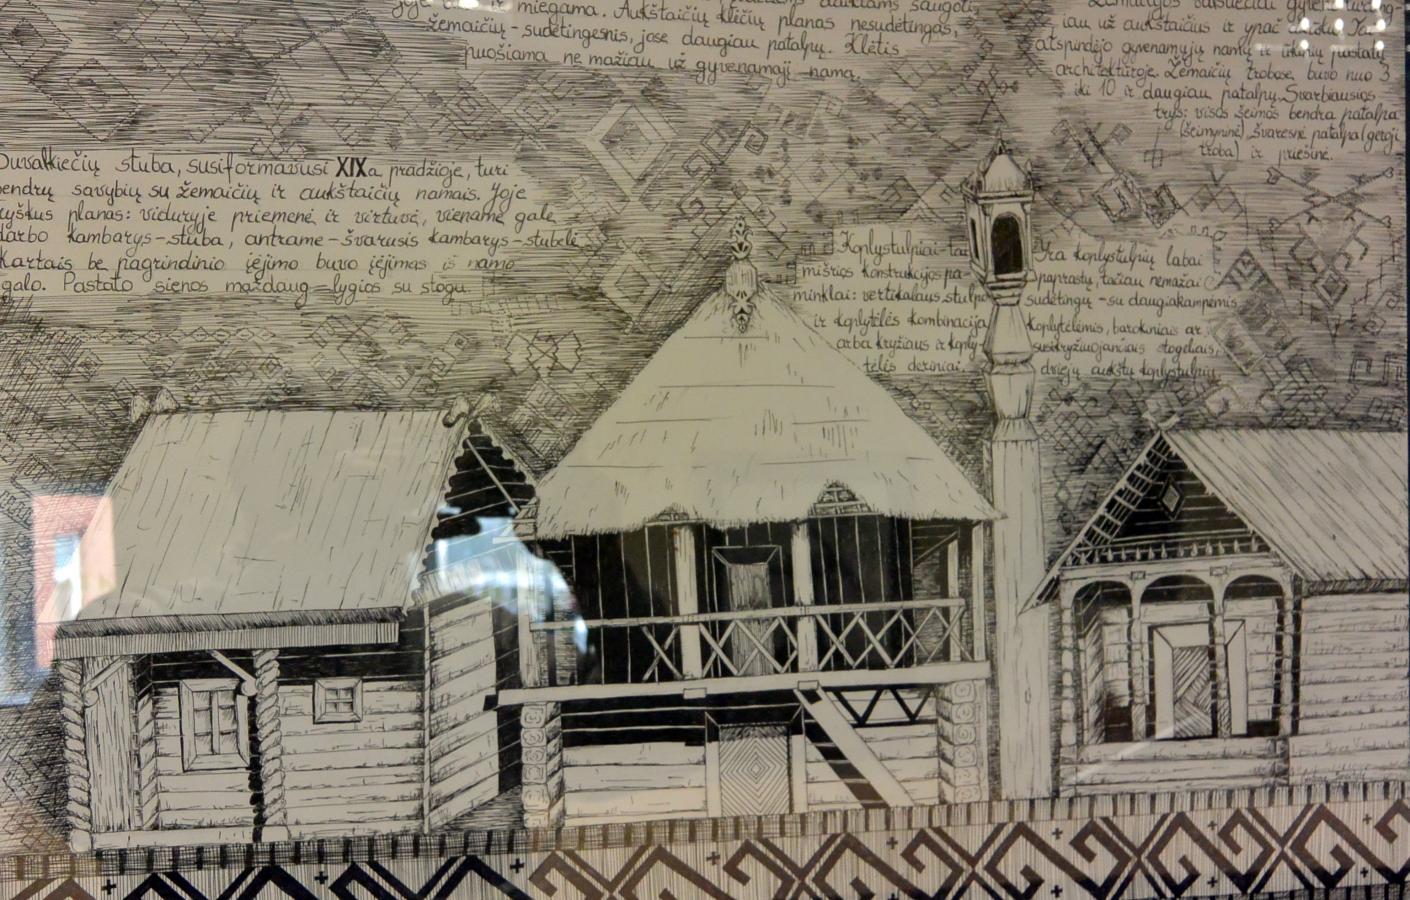 ir miegama. Aukštaičių klėčių planas nesudėtingas,
žemaičių - sudėtingesnis, jose daugiau patalpų. Klėtis
puošiama ne mažiau už gyvenamąjį namą.
iau už aukštaičius ir ypač
atspindėjo gyvenamųjų namų ir ūkinių pastatų
architektūroje. Žemaičių trobose buvo nuo 3
iki 10 ir daugiau patalpų. Svarbiausios
trys: visos šeimos bendra patalpa
(šeimyninė), švaresnė patalpa (geroji
troba) ir priešinė.
Suvalkiečių stuba, susiformavusi XIXa pradžioje, turi
bendrų savybių su žemaičių ir aukštaičių namais. Joje
ryškus planas: viduryje priemenė ir virtuvė, viename gale
darbo kambarys-stuba, antrame-švarusis kambarys-stubelė
kartais be pagrindinio įėjimo buvo įėjimas iš namo
galo. Pastato sienos maždaug lygios su stogu.
Koplystulpiai-tai
mišrios konstrukcijos pa-
minklai: vertikalaus stulpo
ir koplytėlės kombinacija
arba kryžiaus ir koply-
tėlės deriniai.
Yra koplystulpių labai
paprastų, tačiau nemažai
sudėtingų - su daugiakampėmis
koplytėlėmis, barokniais ar
susikryžiuojančiais stogeliais,
dviejų aukštų koplystulpių.